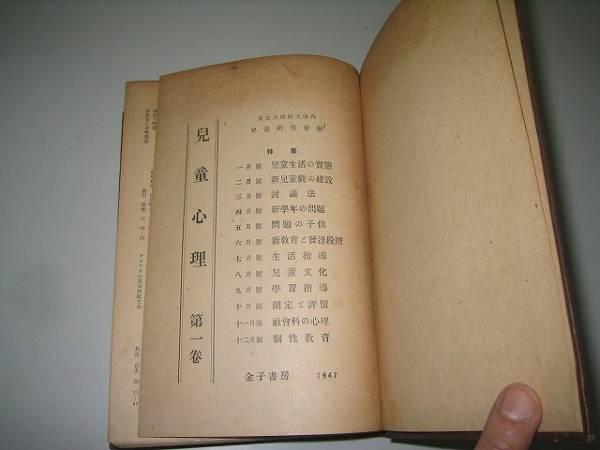 兒童心理 第一卷
東京文理科大學内
兒童研究會編
特集
一月號 兒童生活の實態
二月號 新兒童觀の建設
三月號 討議法
四月號 新學年の問題
五月號 問題の子供
六月號 新教育と發達段階
七月號 生活指導
八月號 兒童文化
九月號 學習指導
十月號 測定と評價
十一月號 社會科の心理
十二月號 個性教育
金子書房 1947